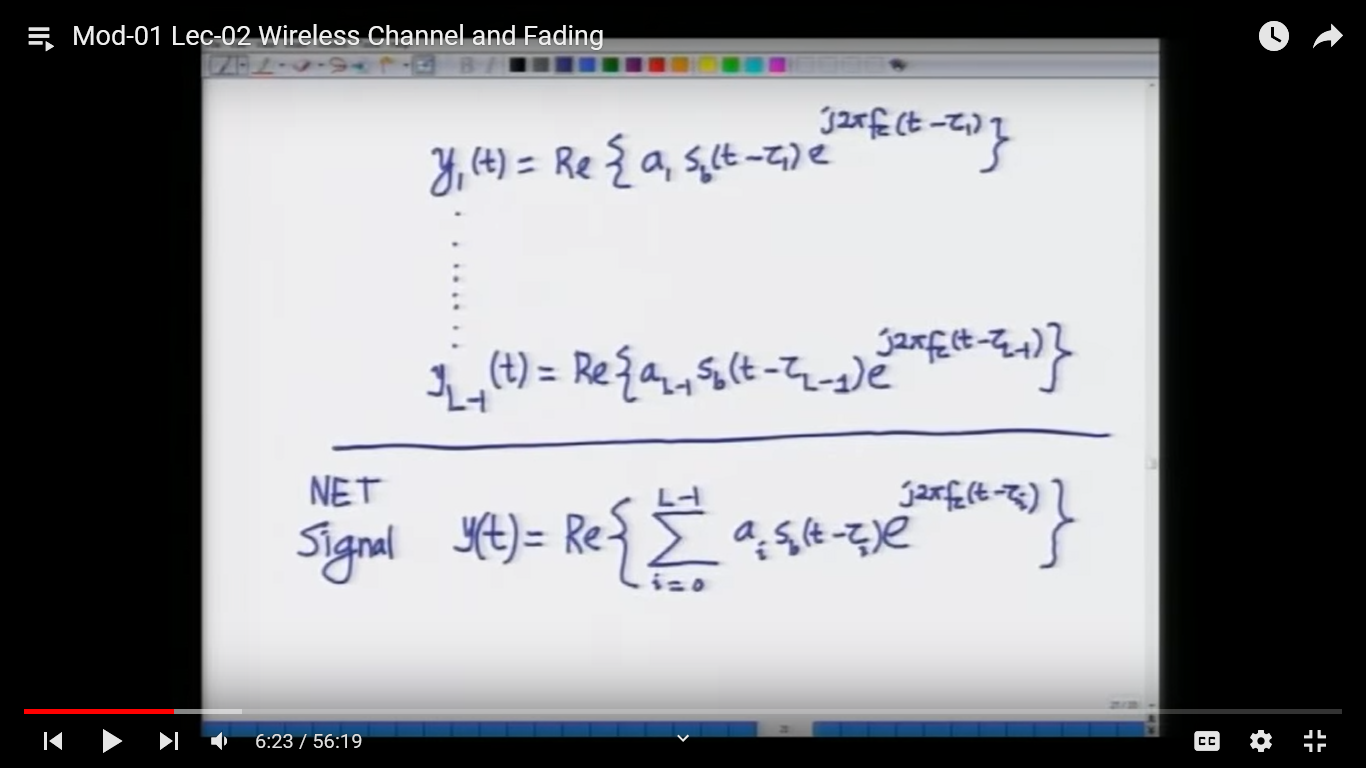 Mod-01 Lec-02 Wireless Channel and Fading
y₁(t) = Re { a₁ s_b(t-τ₁) e^{j2πf_c(t-τ₁)} }
y_{L-1}(t) = Re{ a_{L-1} s_b(t-τ_{L-1}) e^{j2πf_c(t-τ_{L-1})} }
NET
Signal y(t) = Re{ ∑_{i=0}^{L-1} a_i s_b(t-τ_i) e^{j2πf_c(t-τ_i)} }
6:23 / 56:19
CC